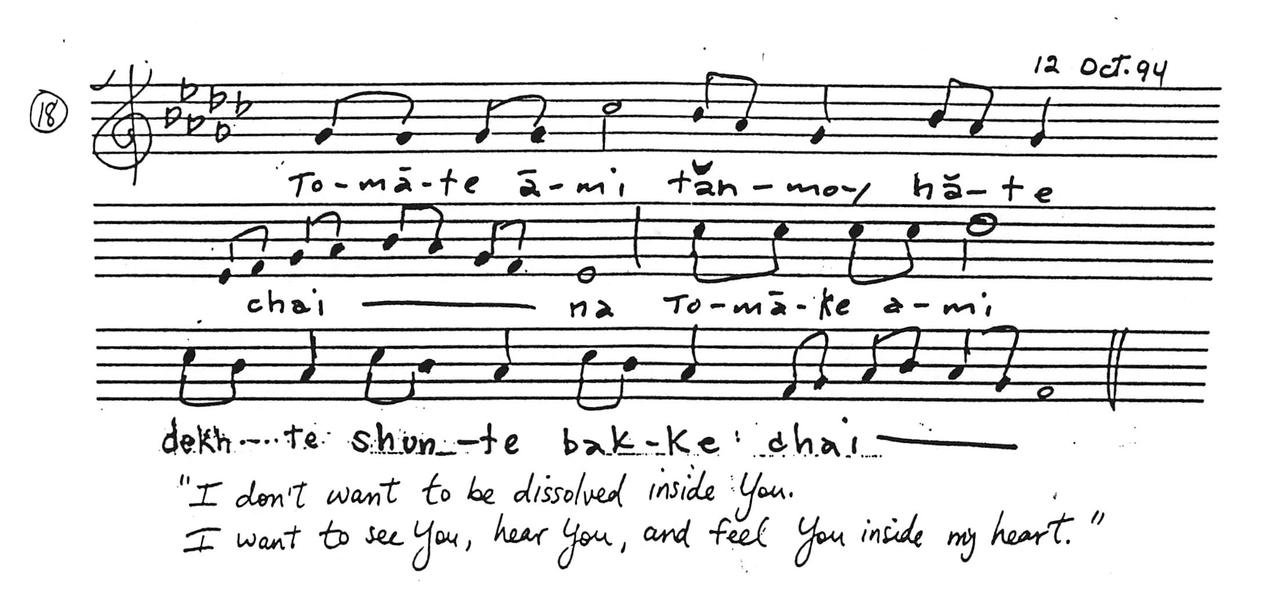 12 Oct. 94
18
To-mā-te ā-mi tăn-moy hă-te
chai — na To-mā-ke a-mi
dekh-te shun-te bak-ke chai —
"I don't want to be dissolved inside You.
I want to see You, hear You, and feel You inside my heart."